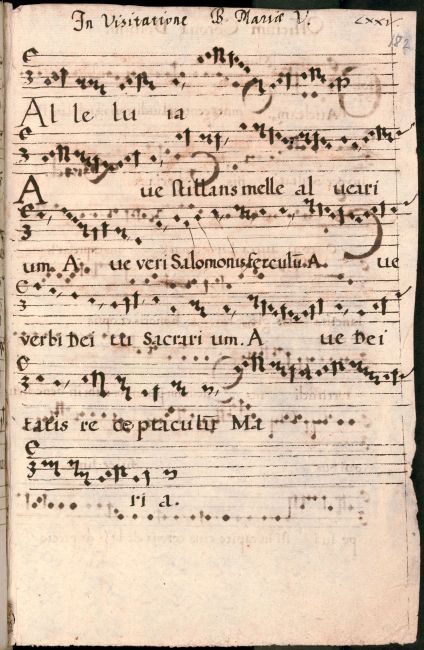 In Visitatione B. Mariæ V. CXXIV.
182
Al le lu ia
A ue stillans melle al ueari
um. A. ue veri Salomonis ferculū. A ue
verbi Dei tu Sacrari um. A ue Dei
tatis re ceptaculū Ma
ri a.